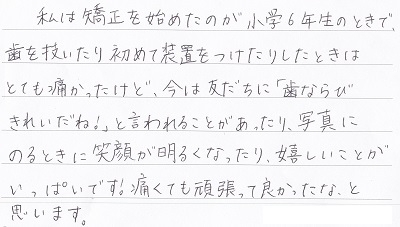 私は矯正を始めたのが小学6年生のときで、
歯を抜いたり初めて装置をつけたりしたときは
とても痛かったけど、今は友だちに「歯ならび
きれいだね!」と言われることがあったり、写真に
のるときに笑顔が明るくなったり、嬉しいことが
いっぱいです!痛くても頑張って良かったな、と
思います。